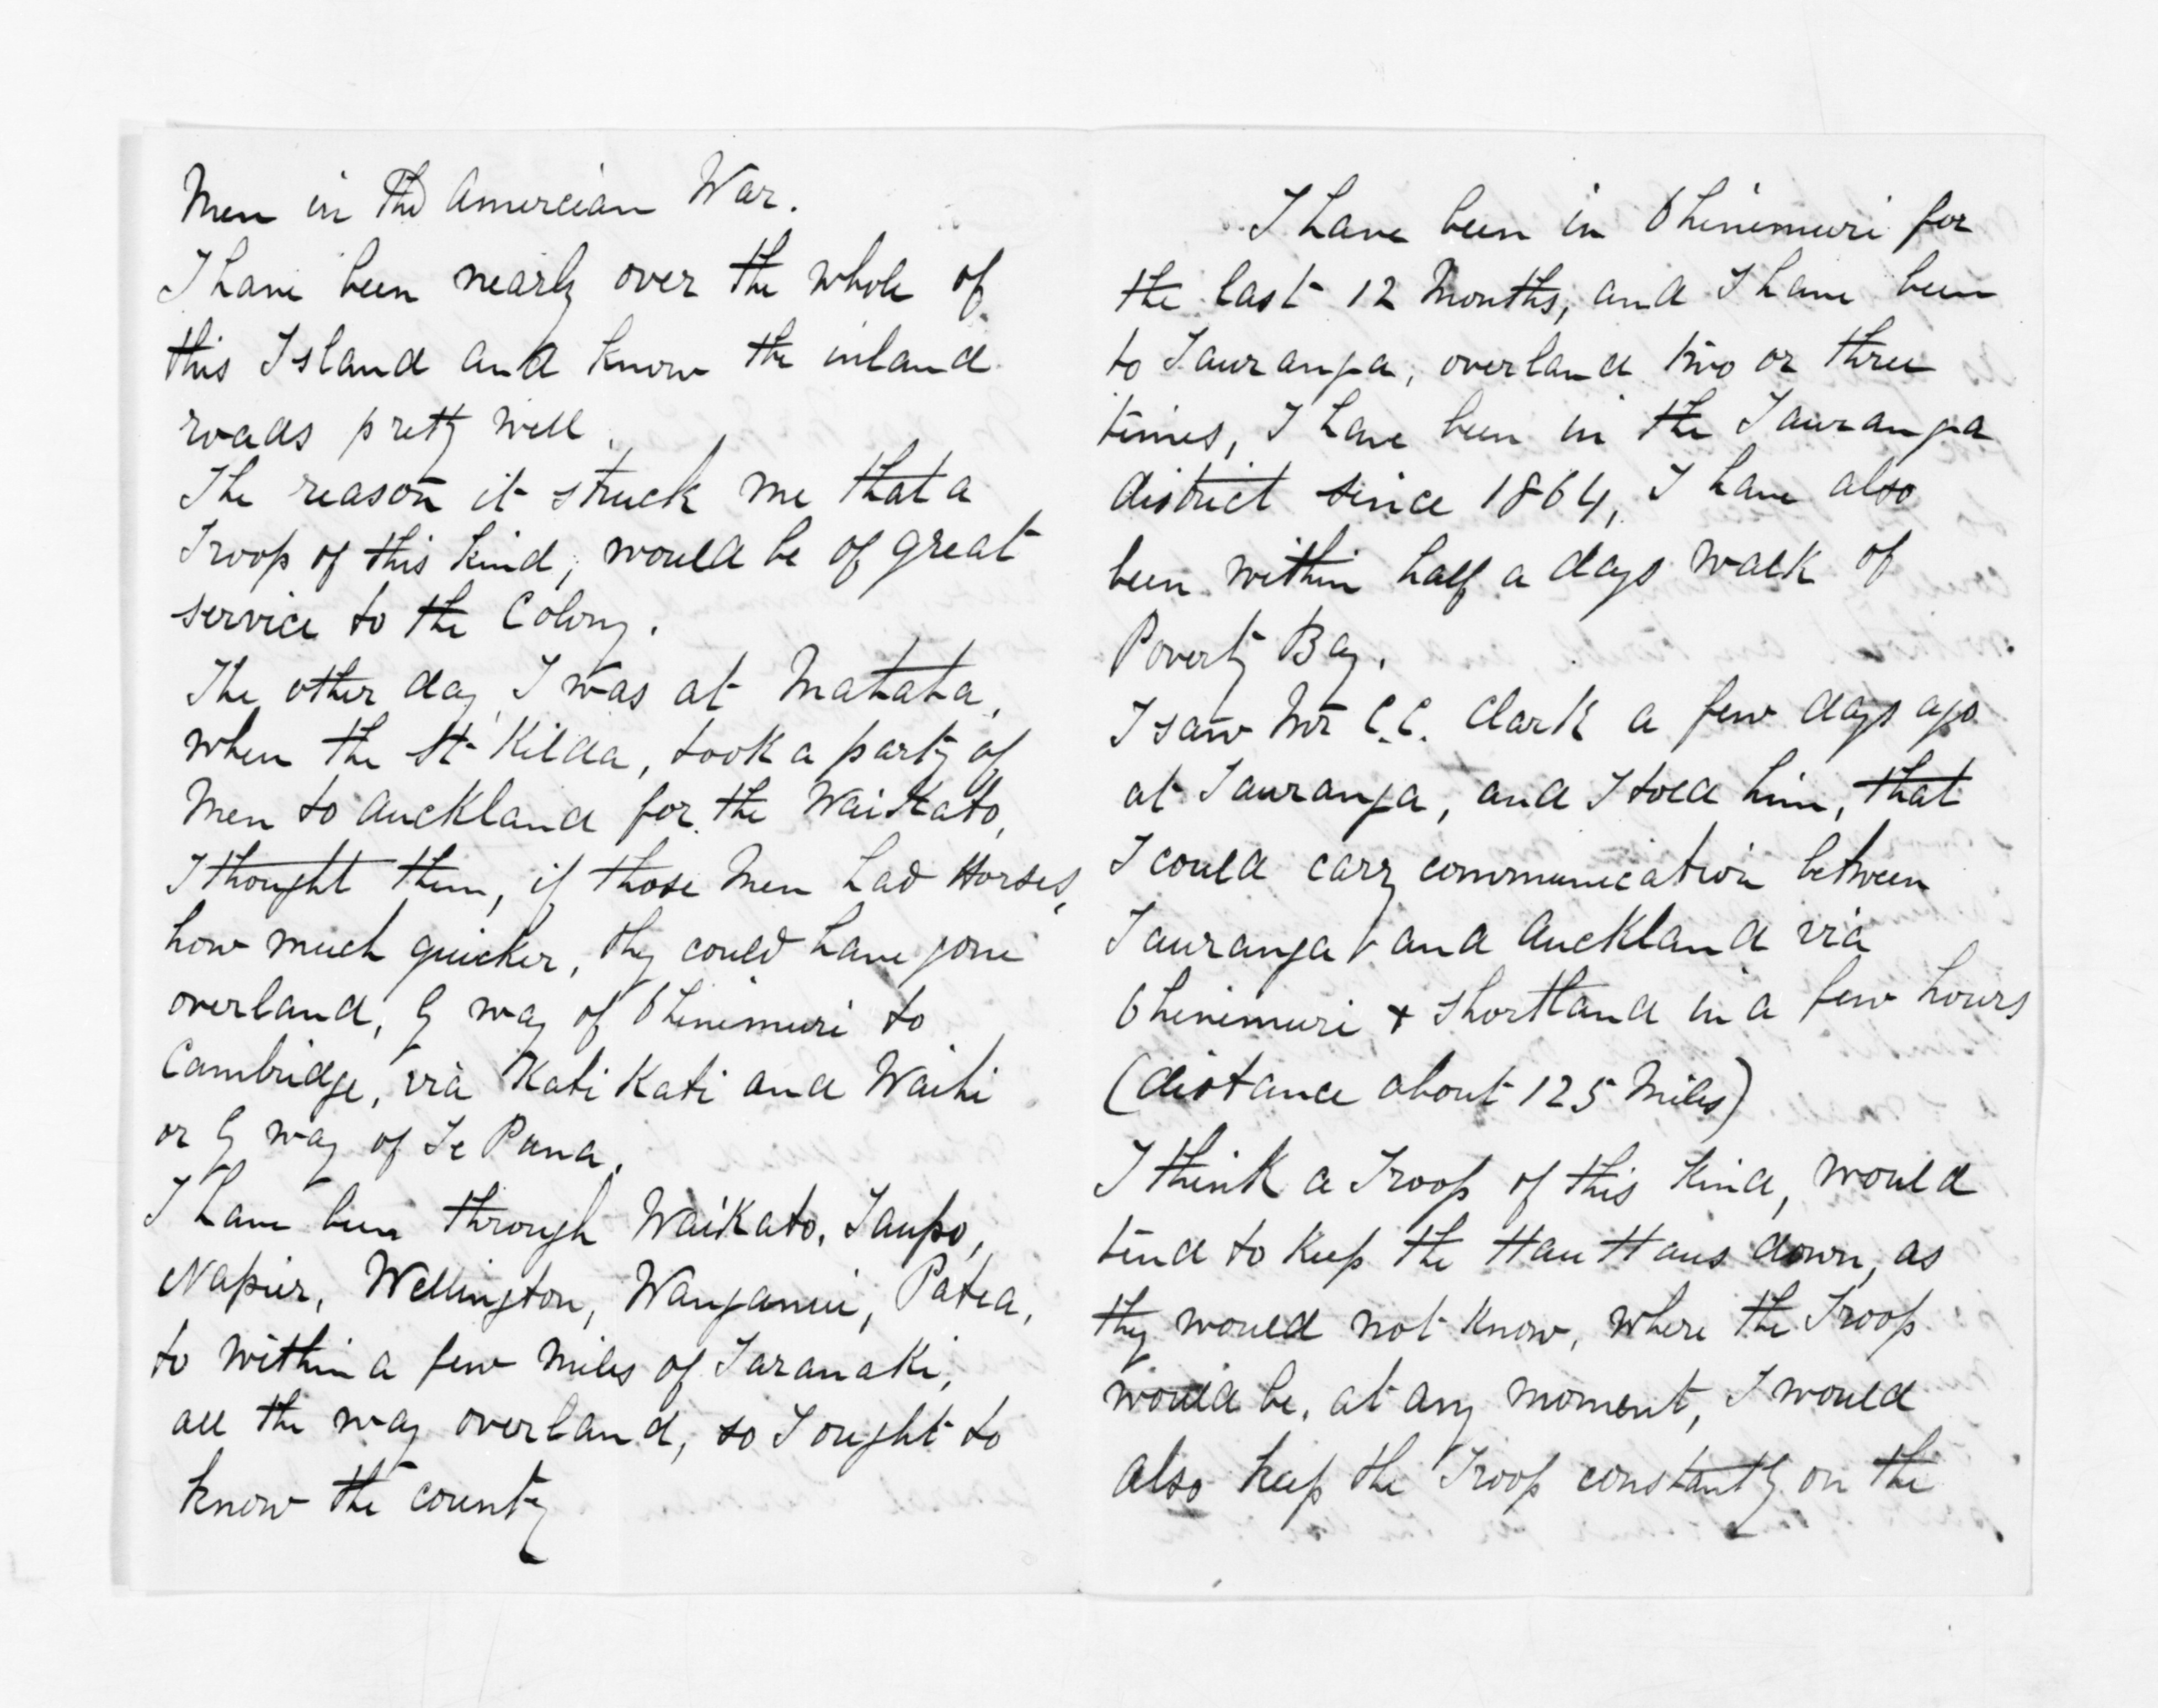 Men in the Amercian War.
I have been nearly over the whole of
this Island and know the inland
roads pretty well.
The reason it struck me that a
Troop of this kind, would be of great
service to the Colony.
The other day I was at Matata,
when the St Kilda, took a party of
Men to Auckland for the Waikato,
I thought then, if those Men had Horses,
how much quicker, they could have gone
overland, by way of Ohinimuri to
Cambridge, via Kati Kati and Waihi
or by way of Te Puna.
I have been through Waikato, Taupo,
Napier, Wellington, Wanganui, Patea,
to within a few miles of Taranaki,
all the way overland, so I ought to
know the county
I have been in Ohinimuri for
the last 12 Months, and I have been
to Tauranga, overland two or three
times, I have been in the Tauranga
district since 1864, I have also
been within half a days walk of
Poverty Bay.
I saw Mr C.C. Clark a few days ago
at Tauranga, and I told him, that
I could carry communication between
Tauranga and Auckland via
Ohinimuri + Shortland in a few hours
(distance about 125 Miles)
I think a Troop of this kind, would
tend to keep the Hau Haus down, as
they would not know, where the Troop
would be, at any moment, I would
also keep the Troop constantly on the